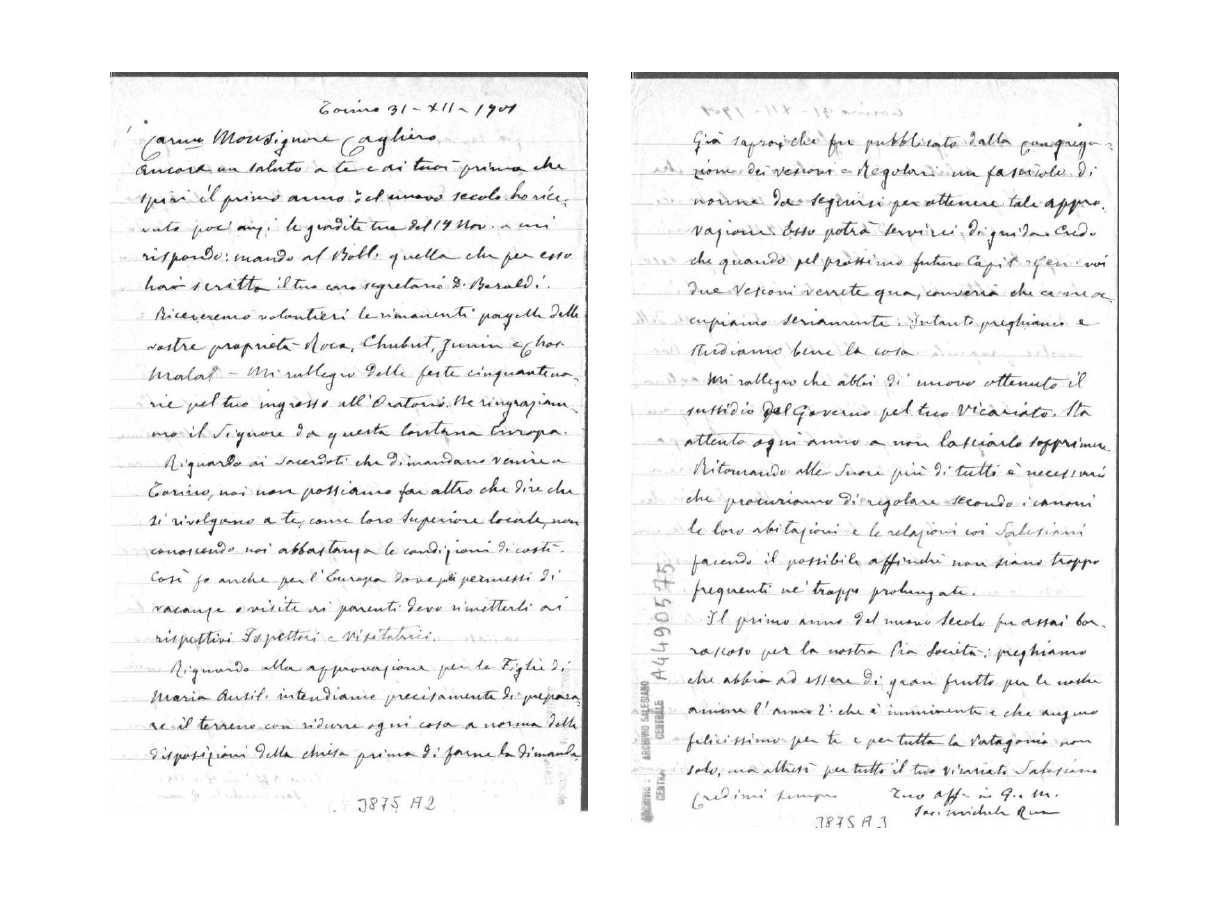 Torino 31-XII-1901
Car.mo Monsignore Cagliero
Ancora un saluto a te e ai tuoi prima che
spiri il primo anno del nuovo secolo ho rice-
vuto poc'anzi le gradite tue del 14 Nov. a cui
rispondo: mando al Boll. quella che per esso
hai scritta il tuo caro segretario D. Beraldi.
Riceveremo volontieri le rimanenti pagelle delle
vostre proprietà Roca, Chubut, Junin e Chos
Malal - Mi rallegro delle feste cinquantena-
rie pel tuo ingresso all'Oratorio. Ne ringraziam-
mo il Signore da questa lontana Europa.
Riguardo ai sacerdoti che dimandano venire a
Torino, noi non possiamo far altro che dire che
si rivolgano a te, come loro Superiore locale, non
conoscendo noi abbastanza le condizioni di costì.
Così fo anche per l'Europa dove gli permessi di
vacanze o visite ai parenti devo rimetterli ai
rispettivi Ispettori e Visitatrici.
Riguardo alla approvazione per le Figlie di
Maria Ausil. intendiamo precisamente di prepara-
re il terreno con ridurre ogni cosa a norma delle
disposizioni della chiesa prima di farne la dimanda
3875 A2
Già saprai che fu pubblicato dalla congrega-
zione dei Vescovi e Regolari un fascicolo di
norme da seguirsi per ottenere tale appro-
vazione Esso potrà servirci di guida. Credo
che quando pel prossimo futuro Capit. Gen. voi
due Vescovi verrete qua, converrà che ce ne oc-
cupiamo seriamente. Intanto preghiamo e
studiamo bene la cosa
Mi rallegro che abbi di nuovo ottenuto il
sussidio del Governo pel tuo Vicariato. Sta
attento ogni anno a non lasciarlo sopprimere.
Ritornando alle Suore più di tutto è necessario
che procuriamo di regolare secondo i canoni
le loro abitazioni e le relazioni coi Salesiani
facendo il possibile affinchè non siano troppo
frequenti nè troppo prolungate.
Il primo anno del nuovo Secolo fu assai bor-
rascoso per la nostra Pia Società: preghiamo
che abbia ad essere di gran frutto per le nostre
anime l'anno 2° che è imminente e che auguro
felicissimo per te e per tutta la Patagonia non
solo, ma altresì per tutto il tuo vicariato Salesiano
Credimi sempre Tuo aff. in G. e M.
Sac. Michele Rua
3875 A3
A4490575
ARCHIVIO SALESIANO
CENTRALE